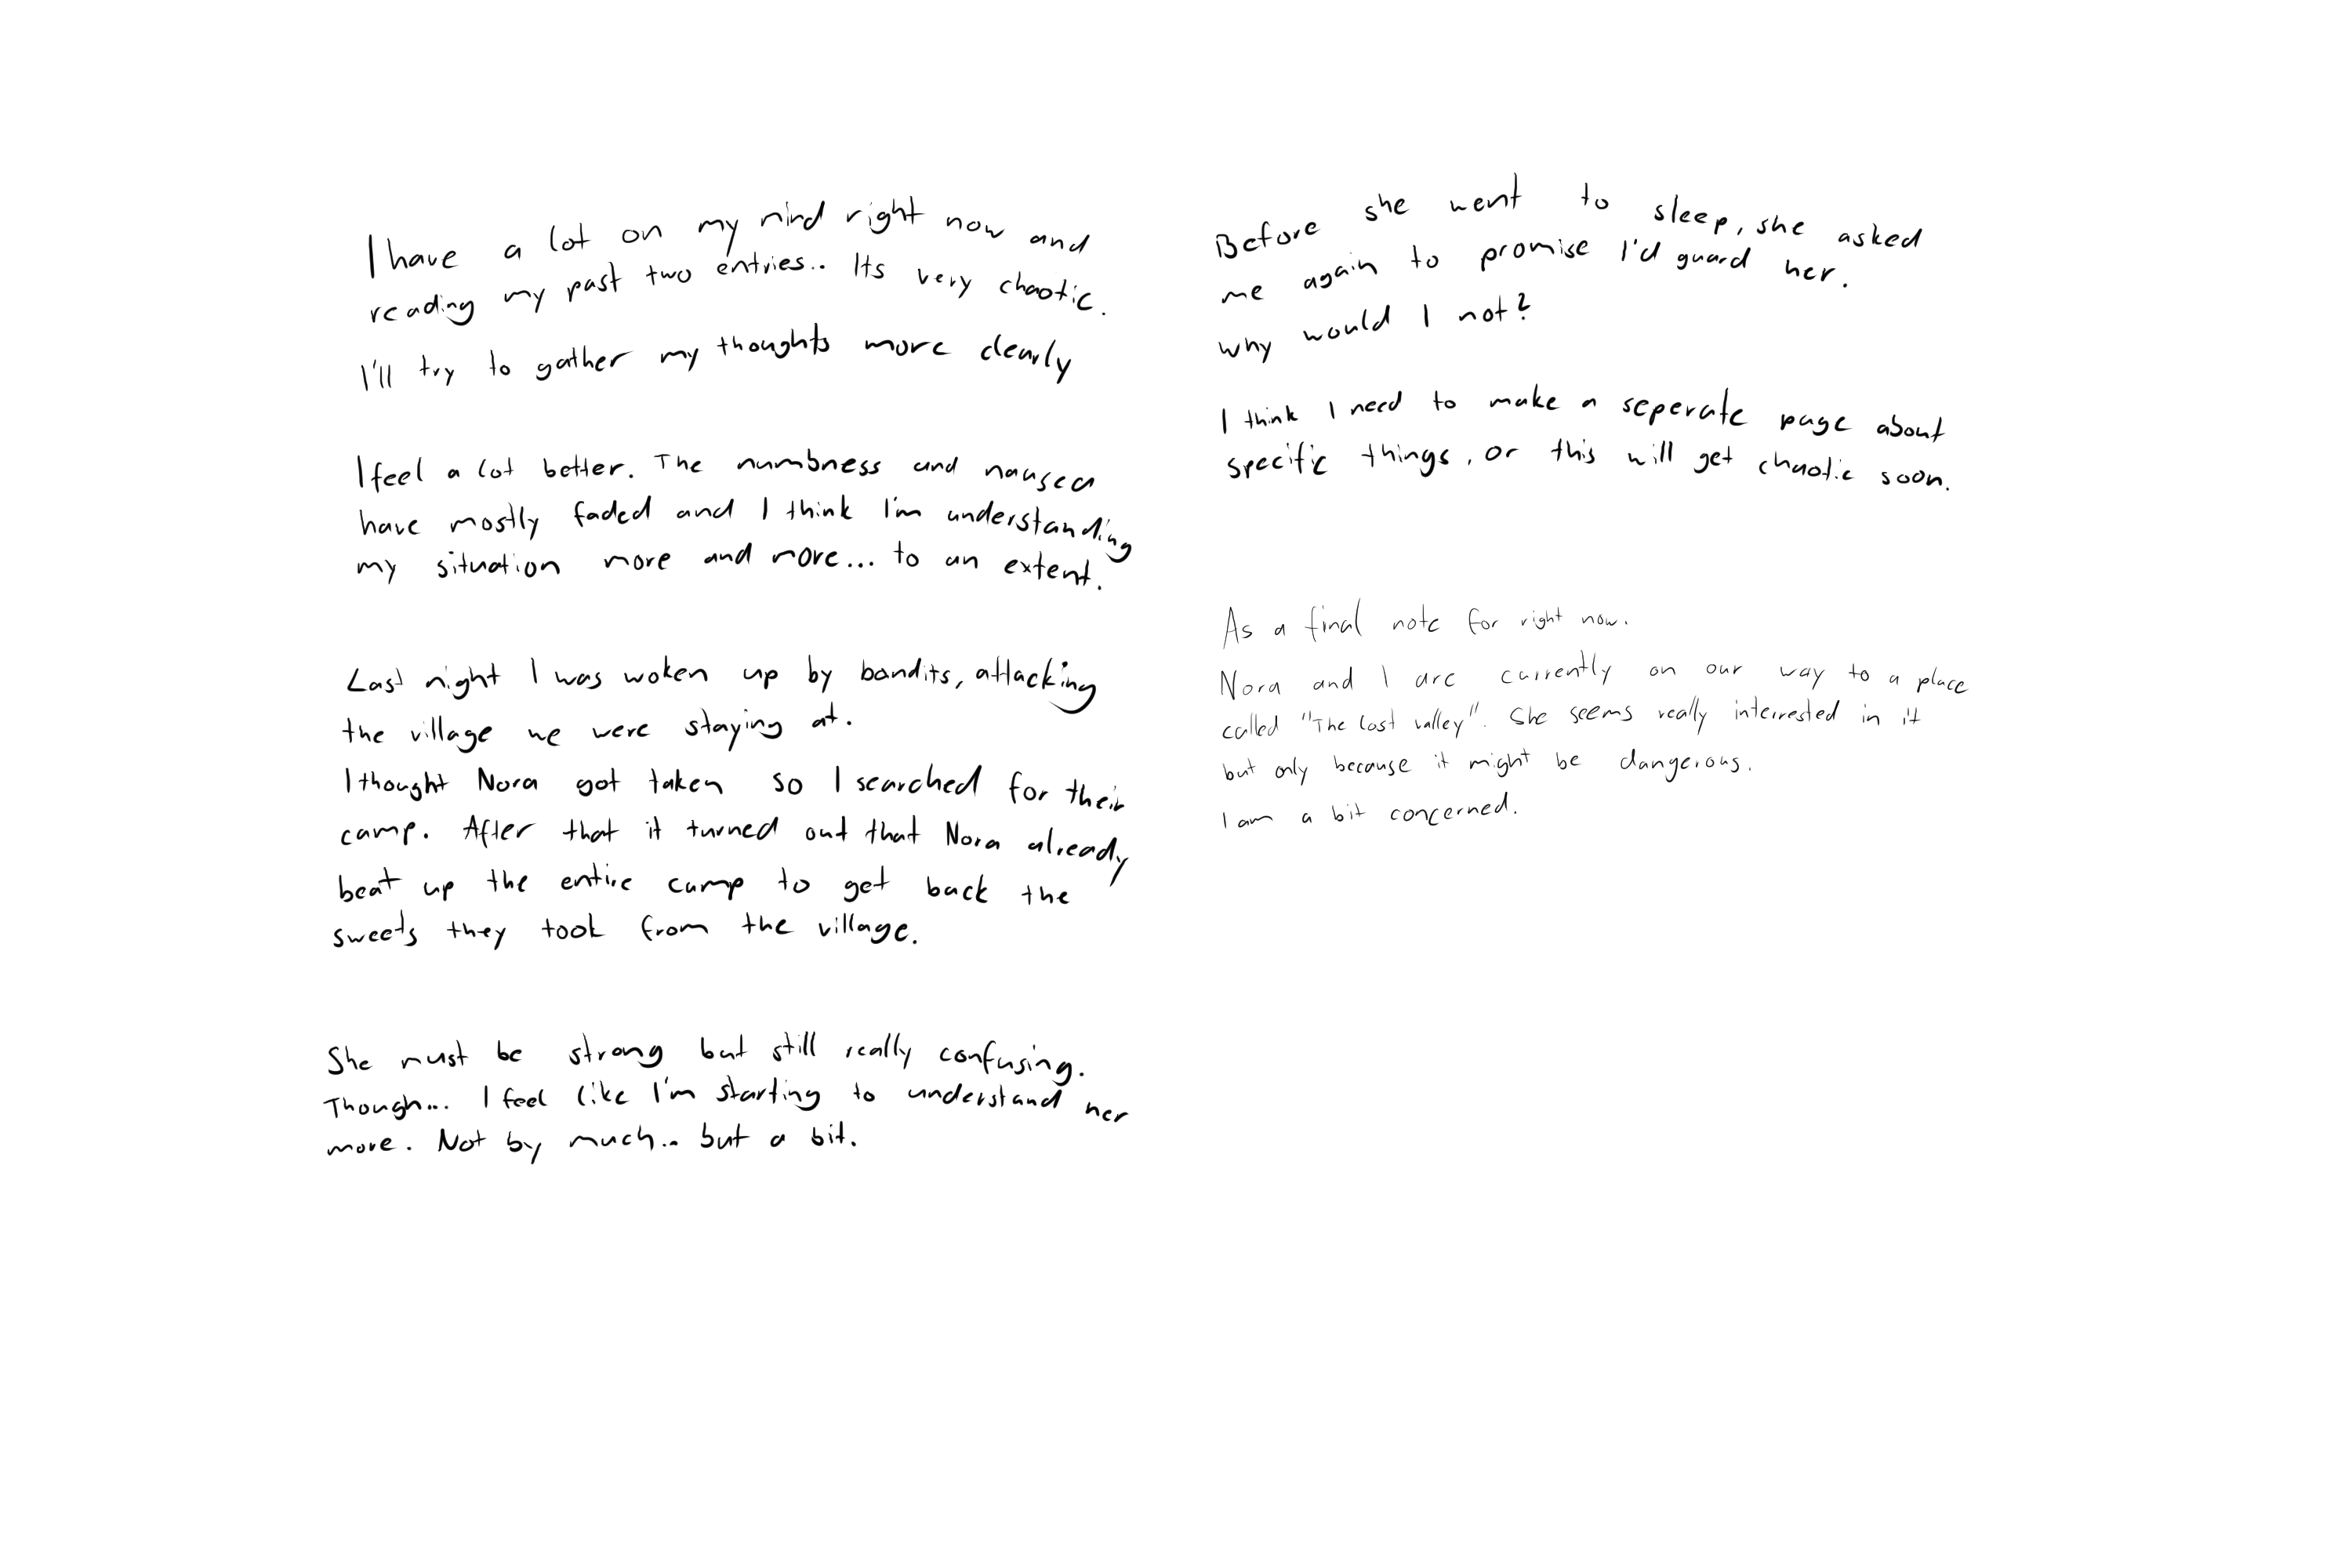 I have a lot on my mind right now and
reading my past two entries.. Its very chaotic.
I'll try to gather my thoughts more clearly
I feel a lot better. The numbness and nausea
have mostly faded and I think I'm understanding
my situation more and more... to an extent.
Last night I was woken up by bandits, attacking
the village we were staying at.
I thought Nora got taken so I searched for their
camp. After that it turned out that Nora already
beat up the entire camp to get back the
sweets they took from the village.
She must be strong but still really confusing.
Though... I feel like I'm starting to understand her
more. Not by much.. but a bit.
Before she went to sleep, she asked
me again to promise I'd guard her.
why would I not?
I think I need to make a seperate page about
specific things, or this will get chaotic soon.
As a final note for right now.
Nora and I are currently on our way to a place
called "The lost valley". She seems really interrested in it
but only because it might be dangerous.
I am a bit concerned.